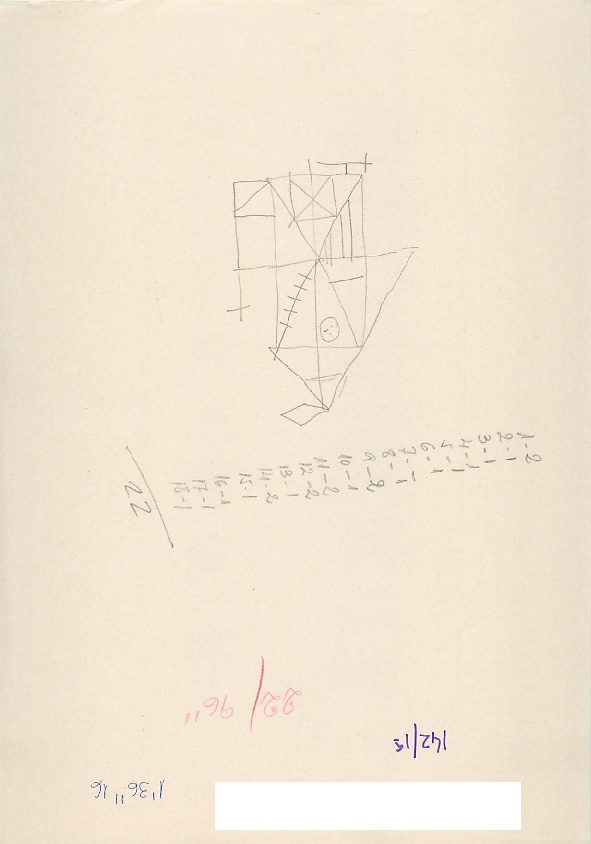 1-2
2-1
3-1
4-1
5-1
6-1
7-1
8-1
9-2
10-1
11-2
12-2
13-1
14-2
15-1
16-1
17-1
18-1
22
22/96"
142/15
1'36"16